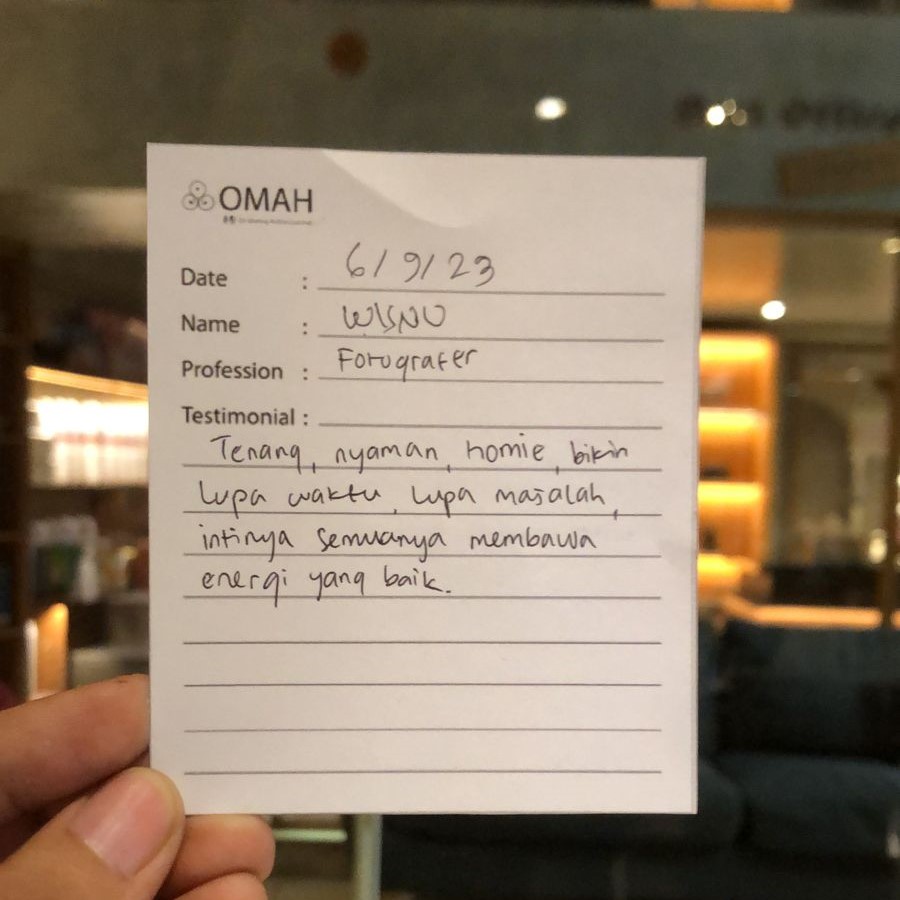 OMAH
Date : 6/9/23
Name : WISNU
Profession : Fotografer
Testimonial :
Tenang, nyaman, homie, bikin
lupa waktu, lupa masalah,
intinya semuanya membawa
energi yang baik.